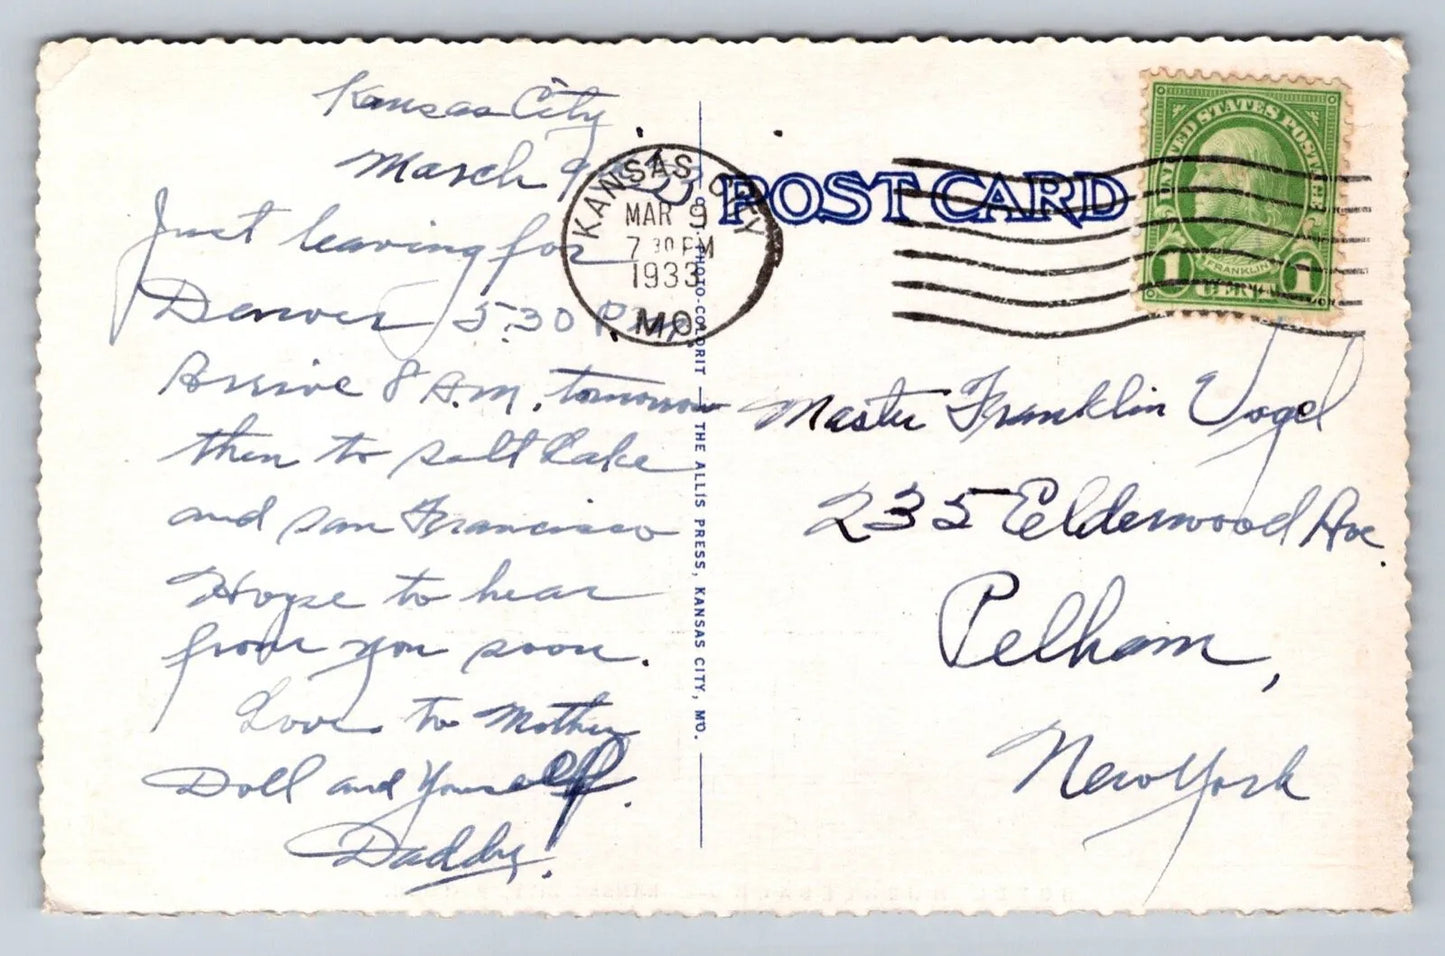 Kansas City
March 9, 33
Just leaving for
Denver 5:30 P.M.
Arrive 8 A.M. tomorrow
then to Salt Lake
and San Francisco
Hope to hear
from you soon.
Love to Mother
Doll and Yourself.
Daddy.
KANSAS CITY
MAR 9
7 30 PM
1933
MO.
PHOTO-COLORIT — THE ALLIS PRESS, KANSAS CITY, MO.
POST CARD
UNITED STATES POSTAGE
FRANKLIN
1 CENT 1
Master Franklin Vogel
235 Elderwood Ave.
Pelham,
New York